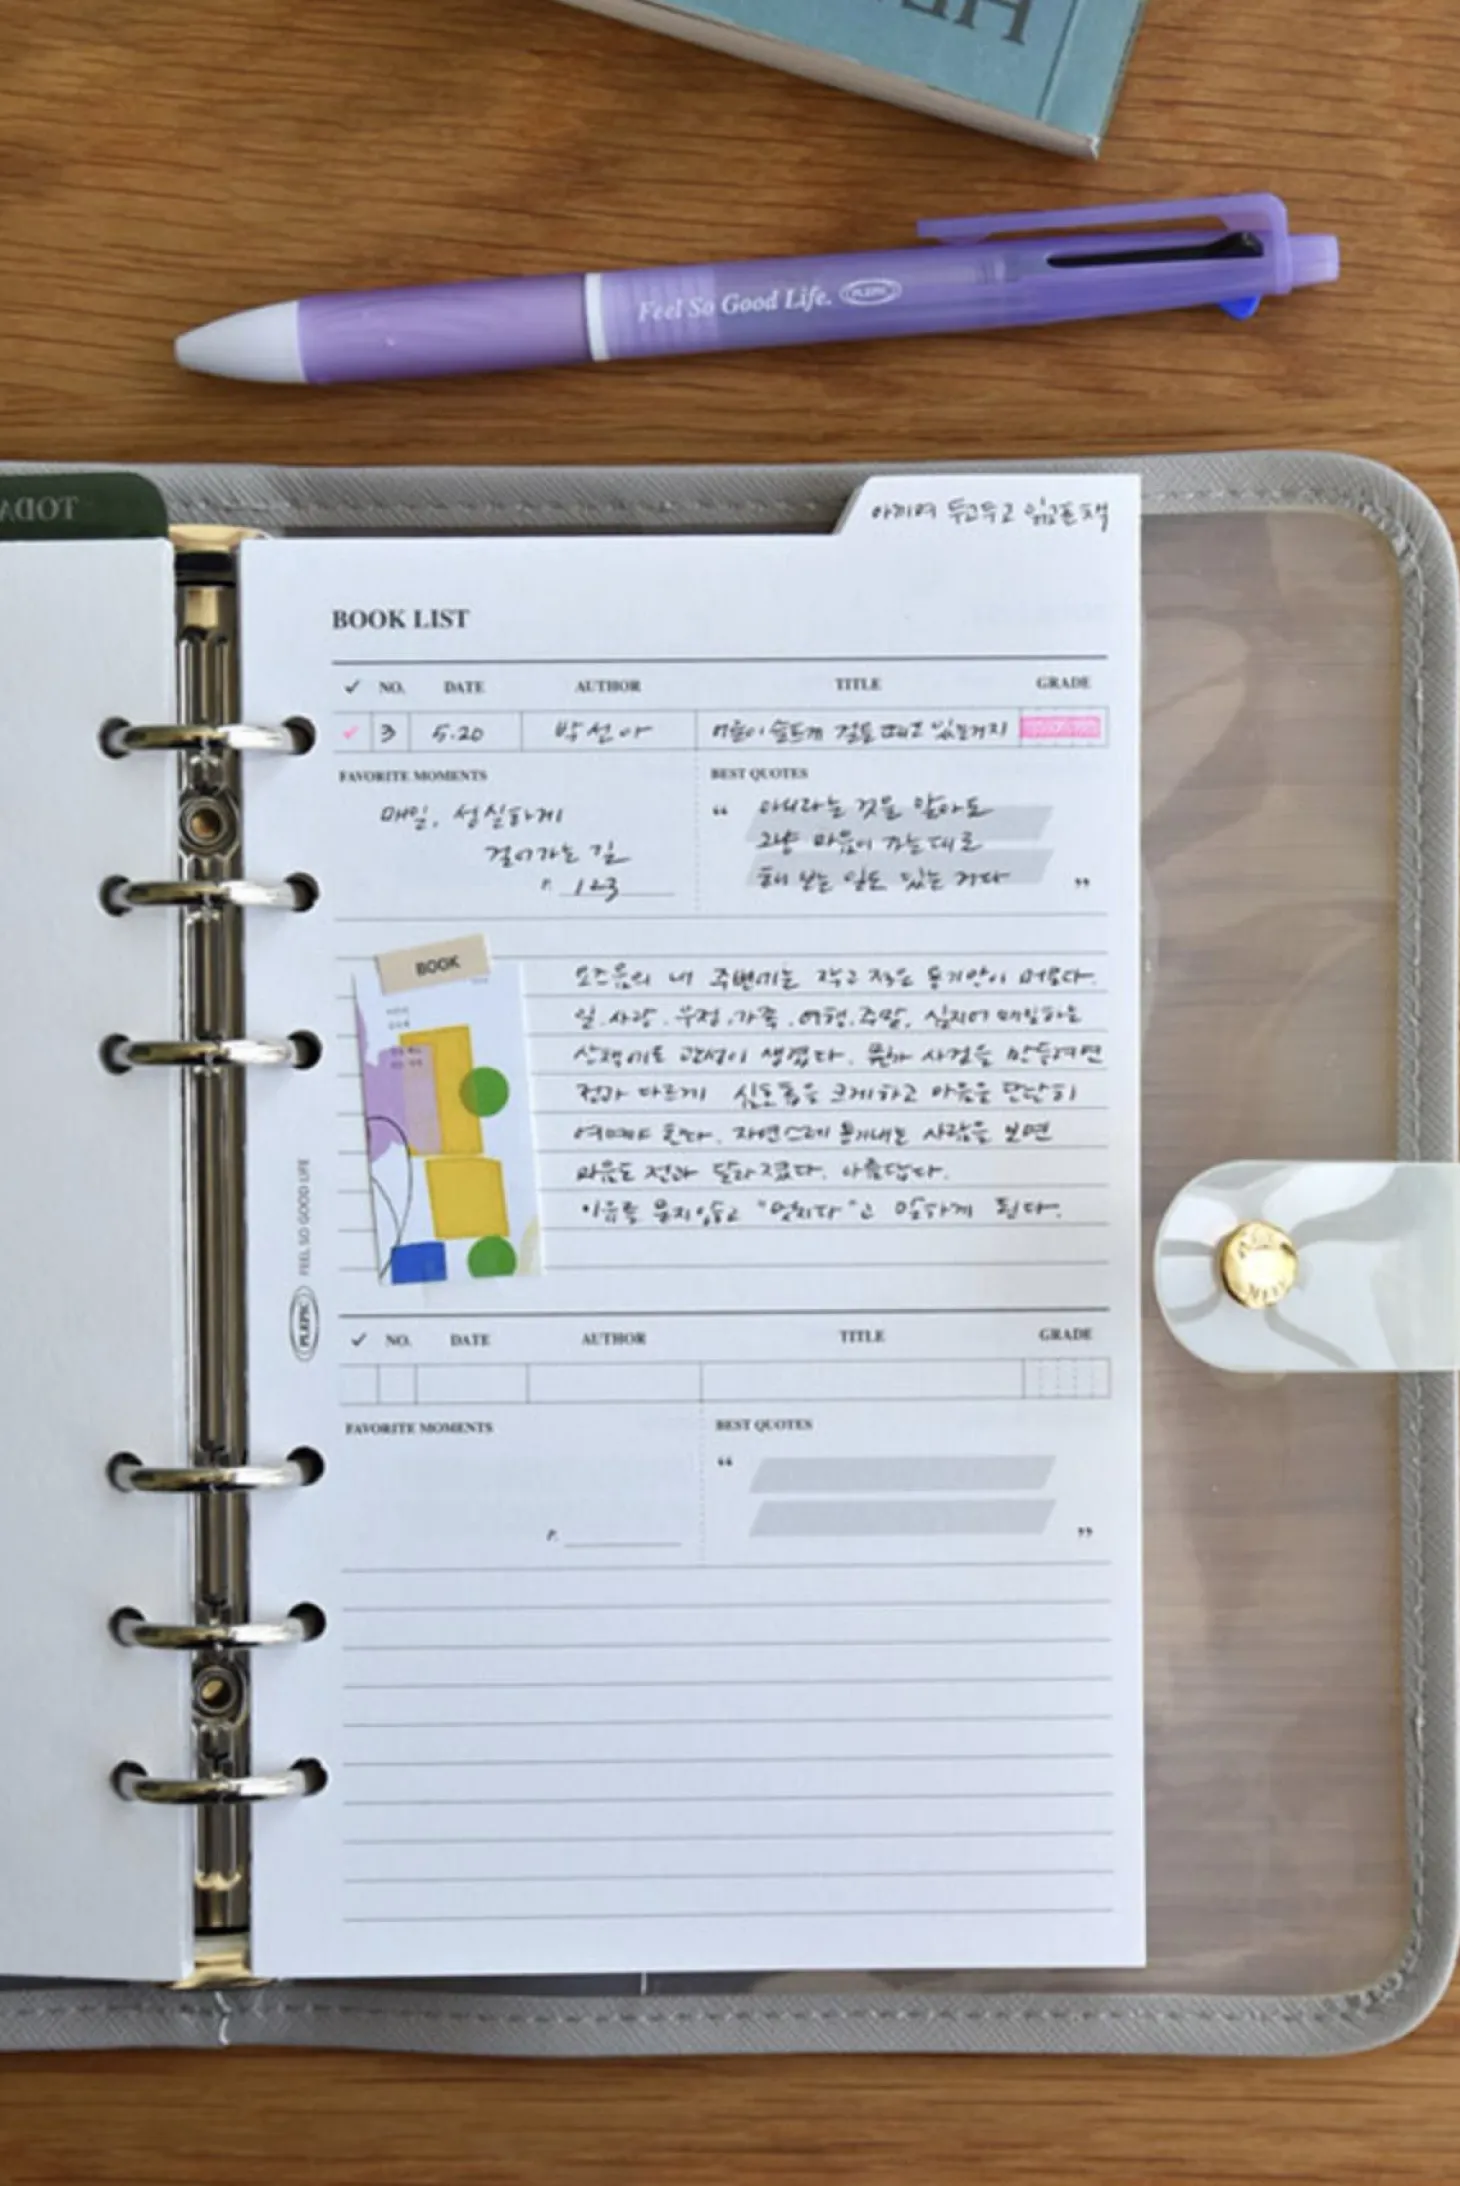 Feel So Good Life. PLEPIC
아끼며 두고두고 읽고픈 책
BOOK LIST
✓ NO. DATE AUTHOR TITLE GRADE
3 5.20 박선아 어른이 슬프게 걸을 때도 있는거지
FAVORITE MOMENTS
매일, 성실하게
걸어가는 길
P. 123
BEST QUOTES
“ 아니라는 것을 알아도
그냥 마음이 가는대로
해 보는 일도 있는 거다 ”
BOOK
요즈음의 내 주변에는 작고 작은 용기만이 머문다.
일.사랑.우정.가족.여행.주말, 심지어 매일하는
산책에도 관성이 생겼다. 뭔가 사건을 만들려면
전과 다르게 심호흡을 크게하고 마음을 단단히
여며야 한다. 자연스레 용기내는 사람을 보면
마음도 전과 달라졌다. 아름답다.
이유를 묻지않고 "멋지다"고 말하게 된다.
PLEPIC FEEL SO GOOD LIFE
✓ NO. DATE AUTHOR TITLE GRADE
FAVORITE MOMENTS
P.
BEST QUOTES
“ ”